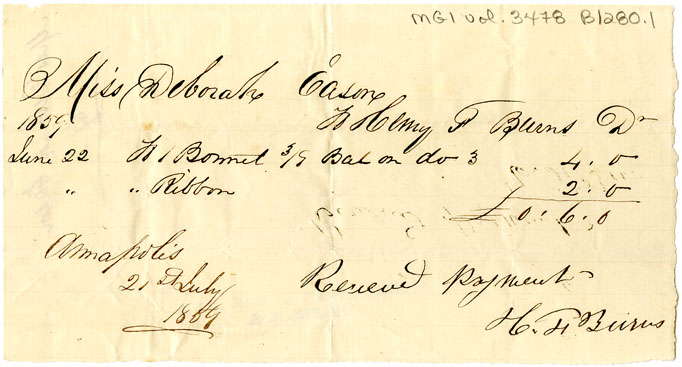 MG1 vol. 3478 B1280.1
Miss Deborah Eason
1859 To Henry F Burns Dr
June 22 To 1 Bonnet 3/9 Bal on do 3 4. 0
" " Ribbon 2. 0
0. 6. 0
Annapolis
21st July
1859
Received Payment
H. F Burns